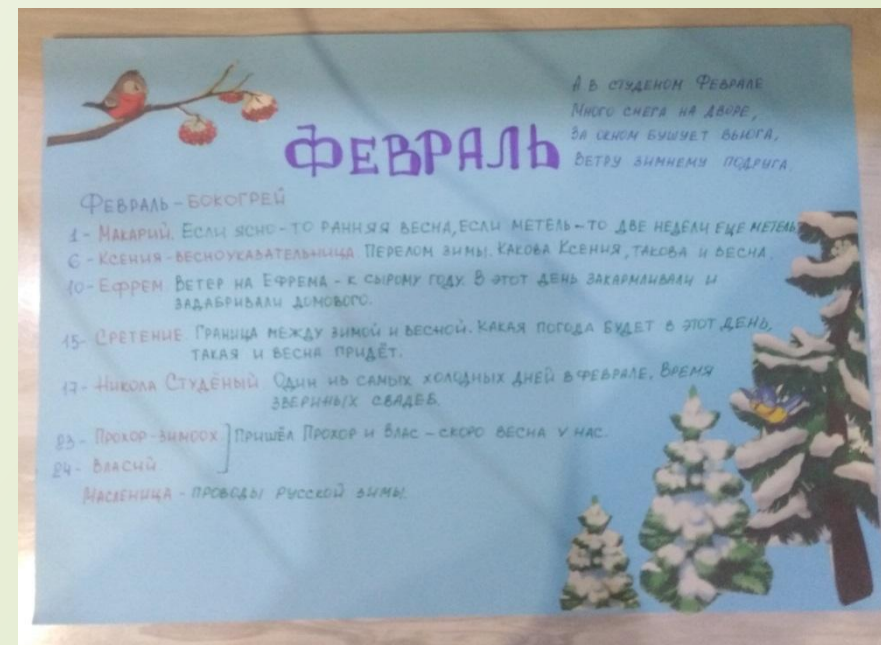 А В СТУДЕНОМ ФЕВРАЛЕ
МНОГО СНЕГА НА ДВОРЕ,
ЗА ОКНОМ БУШУЕТ ВЬЮГА,
ВЕТРУ ЗИМНЕМУ ПОДРУГА.
ФЕВРАЛЬ
ФЕВРАЛЬ - БОКОГРЕЙ
1 - МАКАРИЙ. ЕСЛИ ЯСНО - ТО РАННЯЯ ВЕСНА, ЕСЛИ МЕТЕЛЬ - ТО ДВЕ НЕДЕЛИ ЕЩЕ МЕТЕЛЬ
6 - КСЕНИЯ - ВЕСНОУКАЗАТЕЛЬНИЦА ПЕРЕЛОМ ЗИМЫ. КАКОВА КСЕНИЯ, ТАКОВА И ВЕСНА.
10 - ЕФРЕМ ВЕТЕР НА ЕФРЕМА - К СЫРОМУ ГОДУ. В ЭТОТ ДЕНЬ ЗАКАРМЛИВАЛИ И
ЗАДАБРИВАЛИ ДОМОВОГО.
15 - СРЕТЕНИЕ ГРАНИЦА МЕЖДУ ЗИМОЙ И ВЕСНОЙ. КАКАЯ ПОГОДА БУДЕТ В ЭТОТ ДЕНЬ,
ТАКАЯ И ВЕСНА ПРИДЁТ.
17 - НИКОЛА СТУДЁНЫЙ ОДИН ИЗ САМЫХ ХОЛОДНЫХ ДНЕЙ В ФЕВРАЛЕ. ВРЕМЯ
ЗВЕРИНЫХ СВАДЕБ
23 - ПРОХОР - ЗИМООХ ПРИШЁЛ ПРОХОР И ВЛАС - СКОРО ВЕСНА У НАС.
24 - ВЛАСИЙ
МАСЛЕНИЦА - ПРОВОДЫ РУССКОЙ ЗИМЫ.